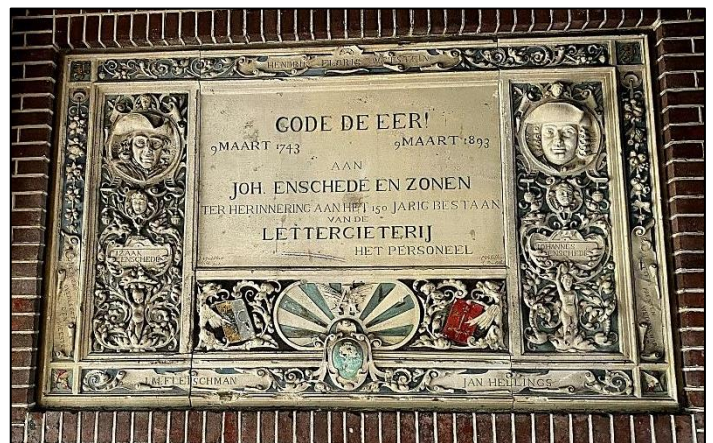 HENDRIK FLORIS WETSTEIN
GODE DE EER!
9 MAART 1743 9 MAART 1893
AAN
JOH. ENSCHEDÉ EN ZONEN
TER HERINNERING AAN HET 150 JARIG BESTAAN
VAN DE
LETTERGIETERIJ
HET PERSONEEL
IZAAK
ENSCHEDÉ
JOHANNES
ENSCHEDÉ
J.M. FLEISCHMAN
JAN HELLINGS